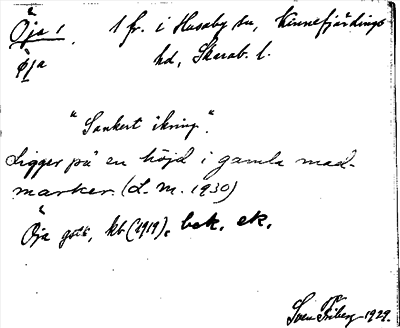 Öja 1. 1 fr. i Husaby sn, Kinnefjärdings
öja hd, Skarab. l.
"Sankert ikring".
Ligger på en höjd i gamla mad-
marker. (L. M. 1930)
Öja gods, kb (1919), bek. ek.
Sven Friberg 1929.